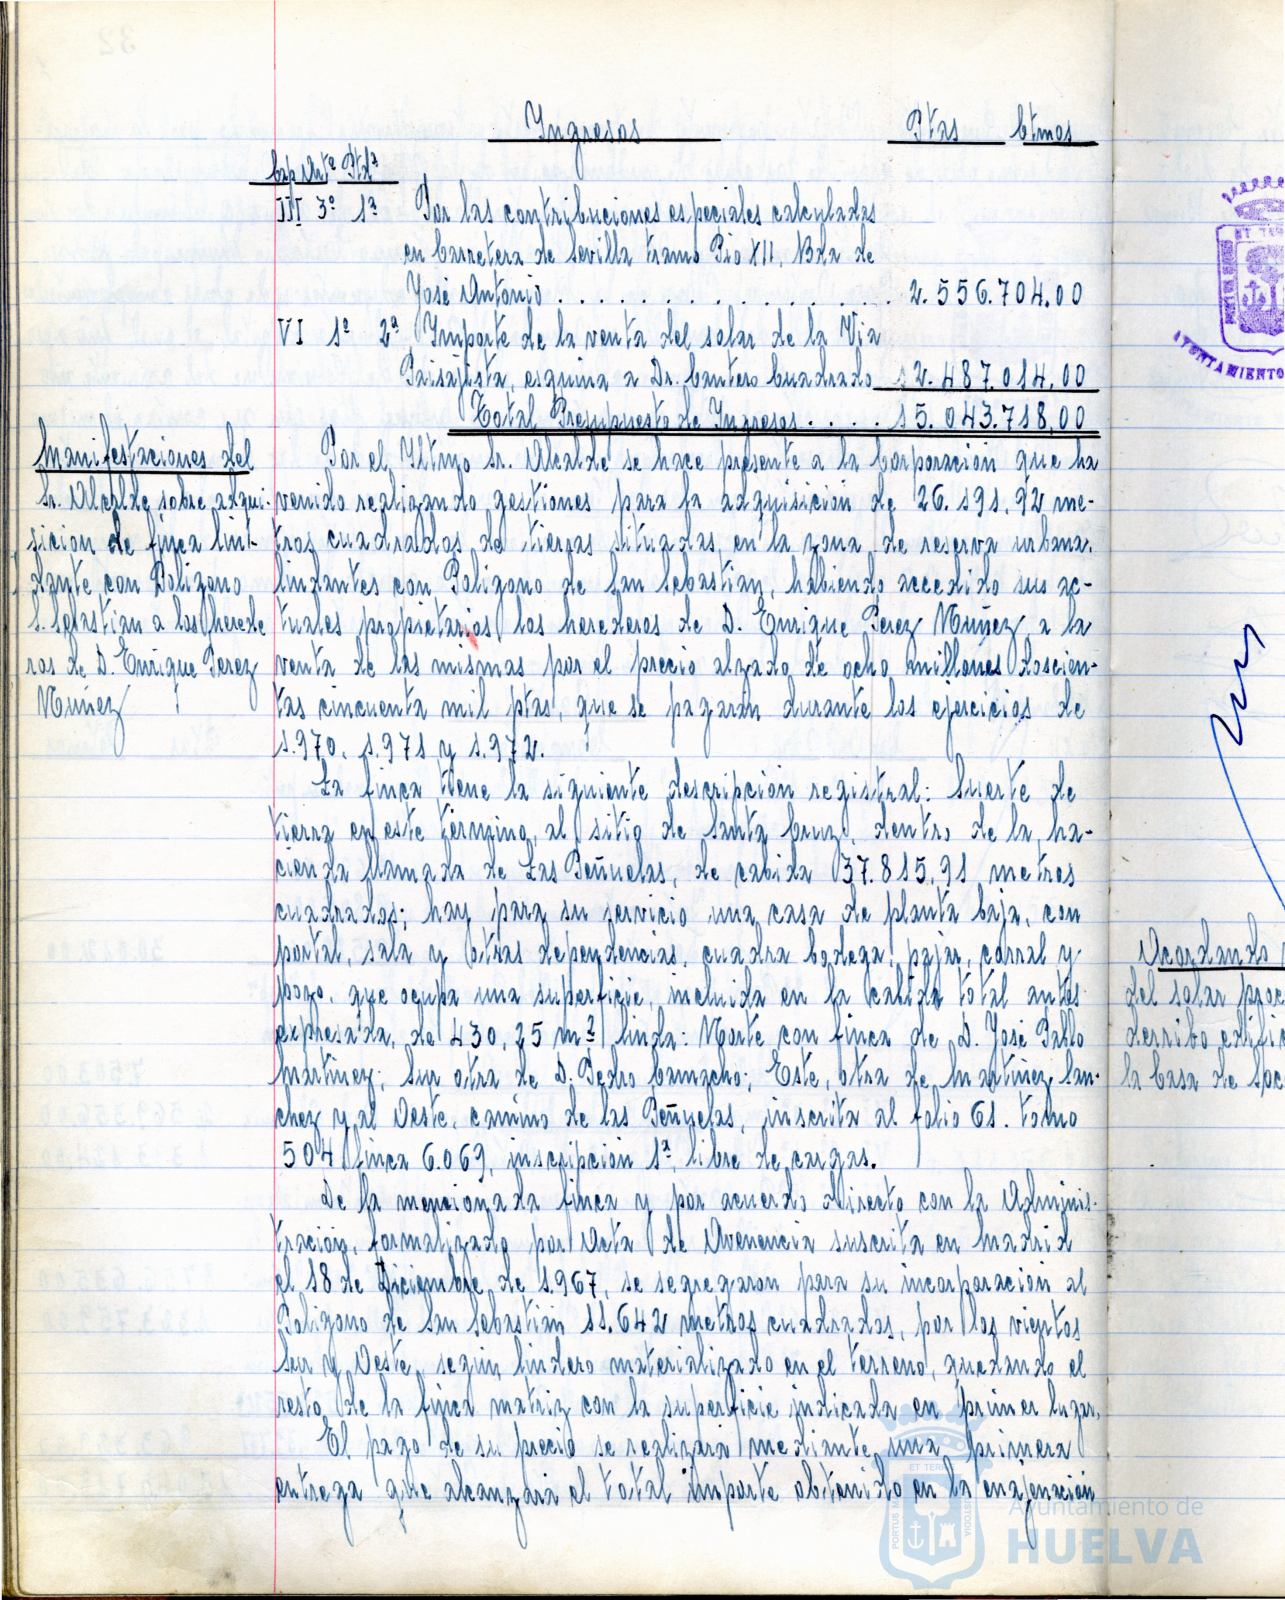 Ingresos Ptas Ctmos
Cap Artº Ptdª
III 3º 1ª Por las contribuciones especiales calculadas
en Carretera de Sevilla tramo Pio XII, Bda de
José Antonio . . . . . . . . . . . . . . . . . 2.556.704,00
VI 1º 2ª Importe de la venta del solar de la Via
Paisajista, esquina a Dr. Cantero Cuadrado 12.487.014,00
Total Presupuesto de Ingresos . . . . 15.043.718,00
Manifestaciones del
Sr. Alcalde sobre adqui-
sicion de finca lin-
dante con Poligono
S. Sebastian a los herede
ros de D. Enrique Perez
Muñez
Por el Iltmo Sr. Alcalde se hace presente a la Corporación que ha
venido realizando gestiones para la adquisición de 26.191,92 me-
tros cuadrados de tierras situadas en la zona de reserva urbana,
lindantes con Poligono de San Sebastián, habiendo accedido sus ac-
tuales propietarios los herederos de D. Enrique Perez Muñez a la
venta de las mismas por el precio alzado de ocho millones doscien-
tas cincuenta mil ptas, que se pagarán durante los ejercicios de
1.970, 1.971 y 1.972.
La finca tiene la siguiente descripción registral: Suerte de
tierra en este término, al sitio de Santa Cruz, dentro de la ha-
cienda llamada de Las Peñuelas, de cabida 37.815,91 metros
cuadrados; hay para su servicio una casa de planta baja, con
portal, sala y otras dependencias, cuadra bodega, pajar, corral y
pozo, que ocupa una superficie, incluida en la cabida total antes
expresada, de 430,25 m²; linda: Norte con finca de D. José Pablo
Martinez; Sur otra de D. Pedro Camacho; Este, otra de Martinez San-
chez y al Oeste, camino de las Peñuelas, inscrita al folio 61, tomo
504 finca 6.069, inscripción 1ª, libre de cargas.
De la mencionada finca y por acuerdo directo con la Adminis-
tración, formalizado por Acta de Avenencia suscrita en Madrid
el 18 de Diciembre de 1.967, se segregaron para su incorporación al
Poligono de San Sebastián 11.642 metros cuadrados, por los vientos
Sur y Oeste, según lindero materializado en el terreno, quedando el
resto de la finca matriz con la superficie indicada en primer lugar.
El pago de su precio se realizará mediante una primera
entrega que alcanzará el total importe obtenido en la enajenación
AYUNTAMIENTO
Acordando
del solar proc
derribo edifi
la Casa de Soc
Ayuntamiento de
HUELVA